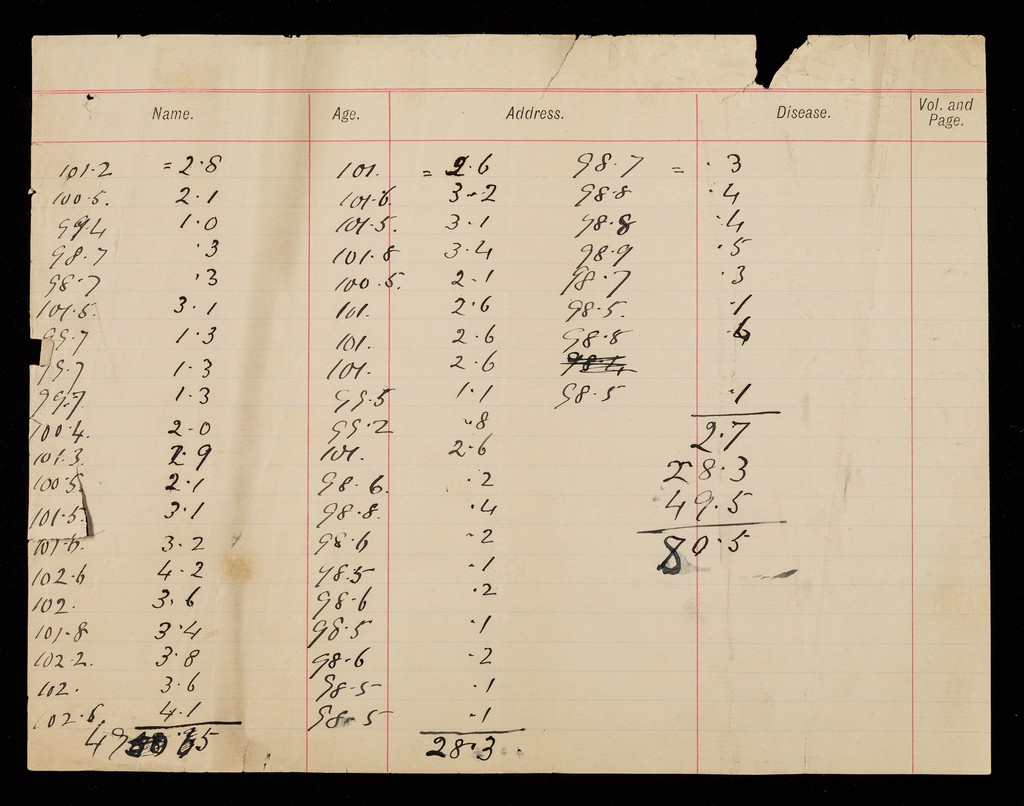 Name. Age. Address. Disease. Vol. and Page.
101.2 = 2.8 101. = 2.6 98.7 = .3
100.5. 2.1 101.6. 3.2 98.8 .4
99.4 1.0 101.5. 3.1 98.8 .4
98.7 .3 101.8 3.4 98.9 .5
98.7 .3 100.5. 2.1 98.7 .3
101.5. 3.1 101. 2.6 98.5. .1
99.7 1.3 101. 2.6 98.8
99.7 1.3 101. 2.6
99.7 1.3 99.5 1.1 98.5 .1
100.4. 2.0 99.2 .8 2.7
101.3. 2.9 101. 2.6 28.3
100.5. 2.1 98.6. .2 49.5
101.5. 3.1 98.8. .4 80.5
3.2 98.6 .2
102.6 4.2 98.5 .1
102. 3.6 98.6 .2
101.8 3.4 98.5 .1
102.2. 3.8 98.6 .2
102. 3.6 98.5 .1
102.6 4.1 98.5 .1
49 .5 28.3